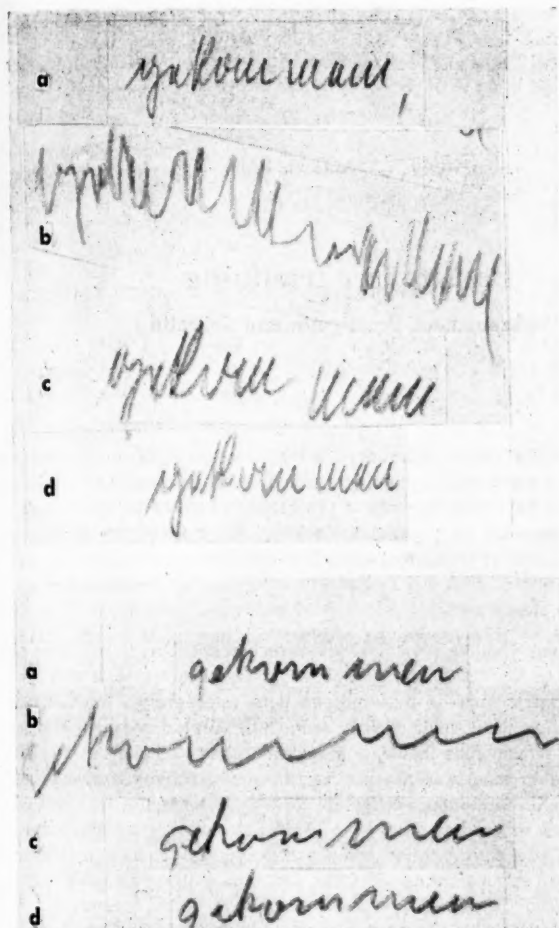 a gekommen,
b
c gekom men
d gekommen
a gekom men
b ekommen
c gekommen
d gekommen